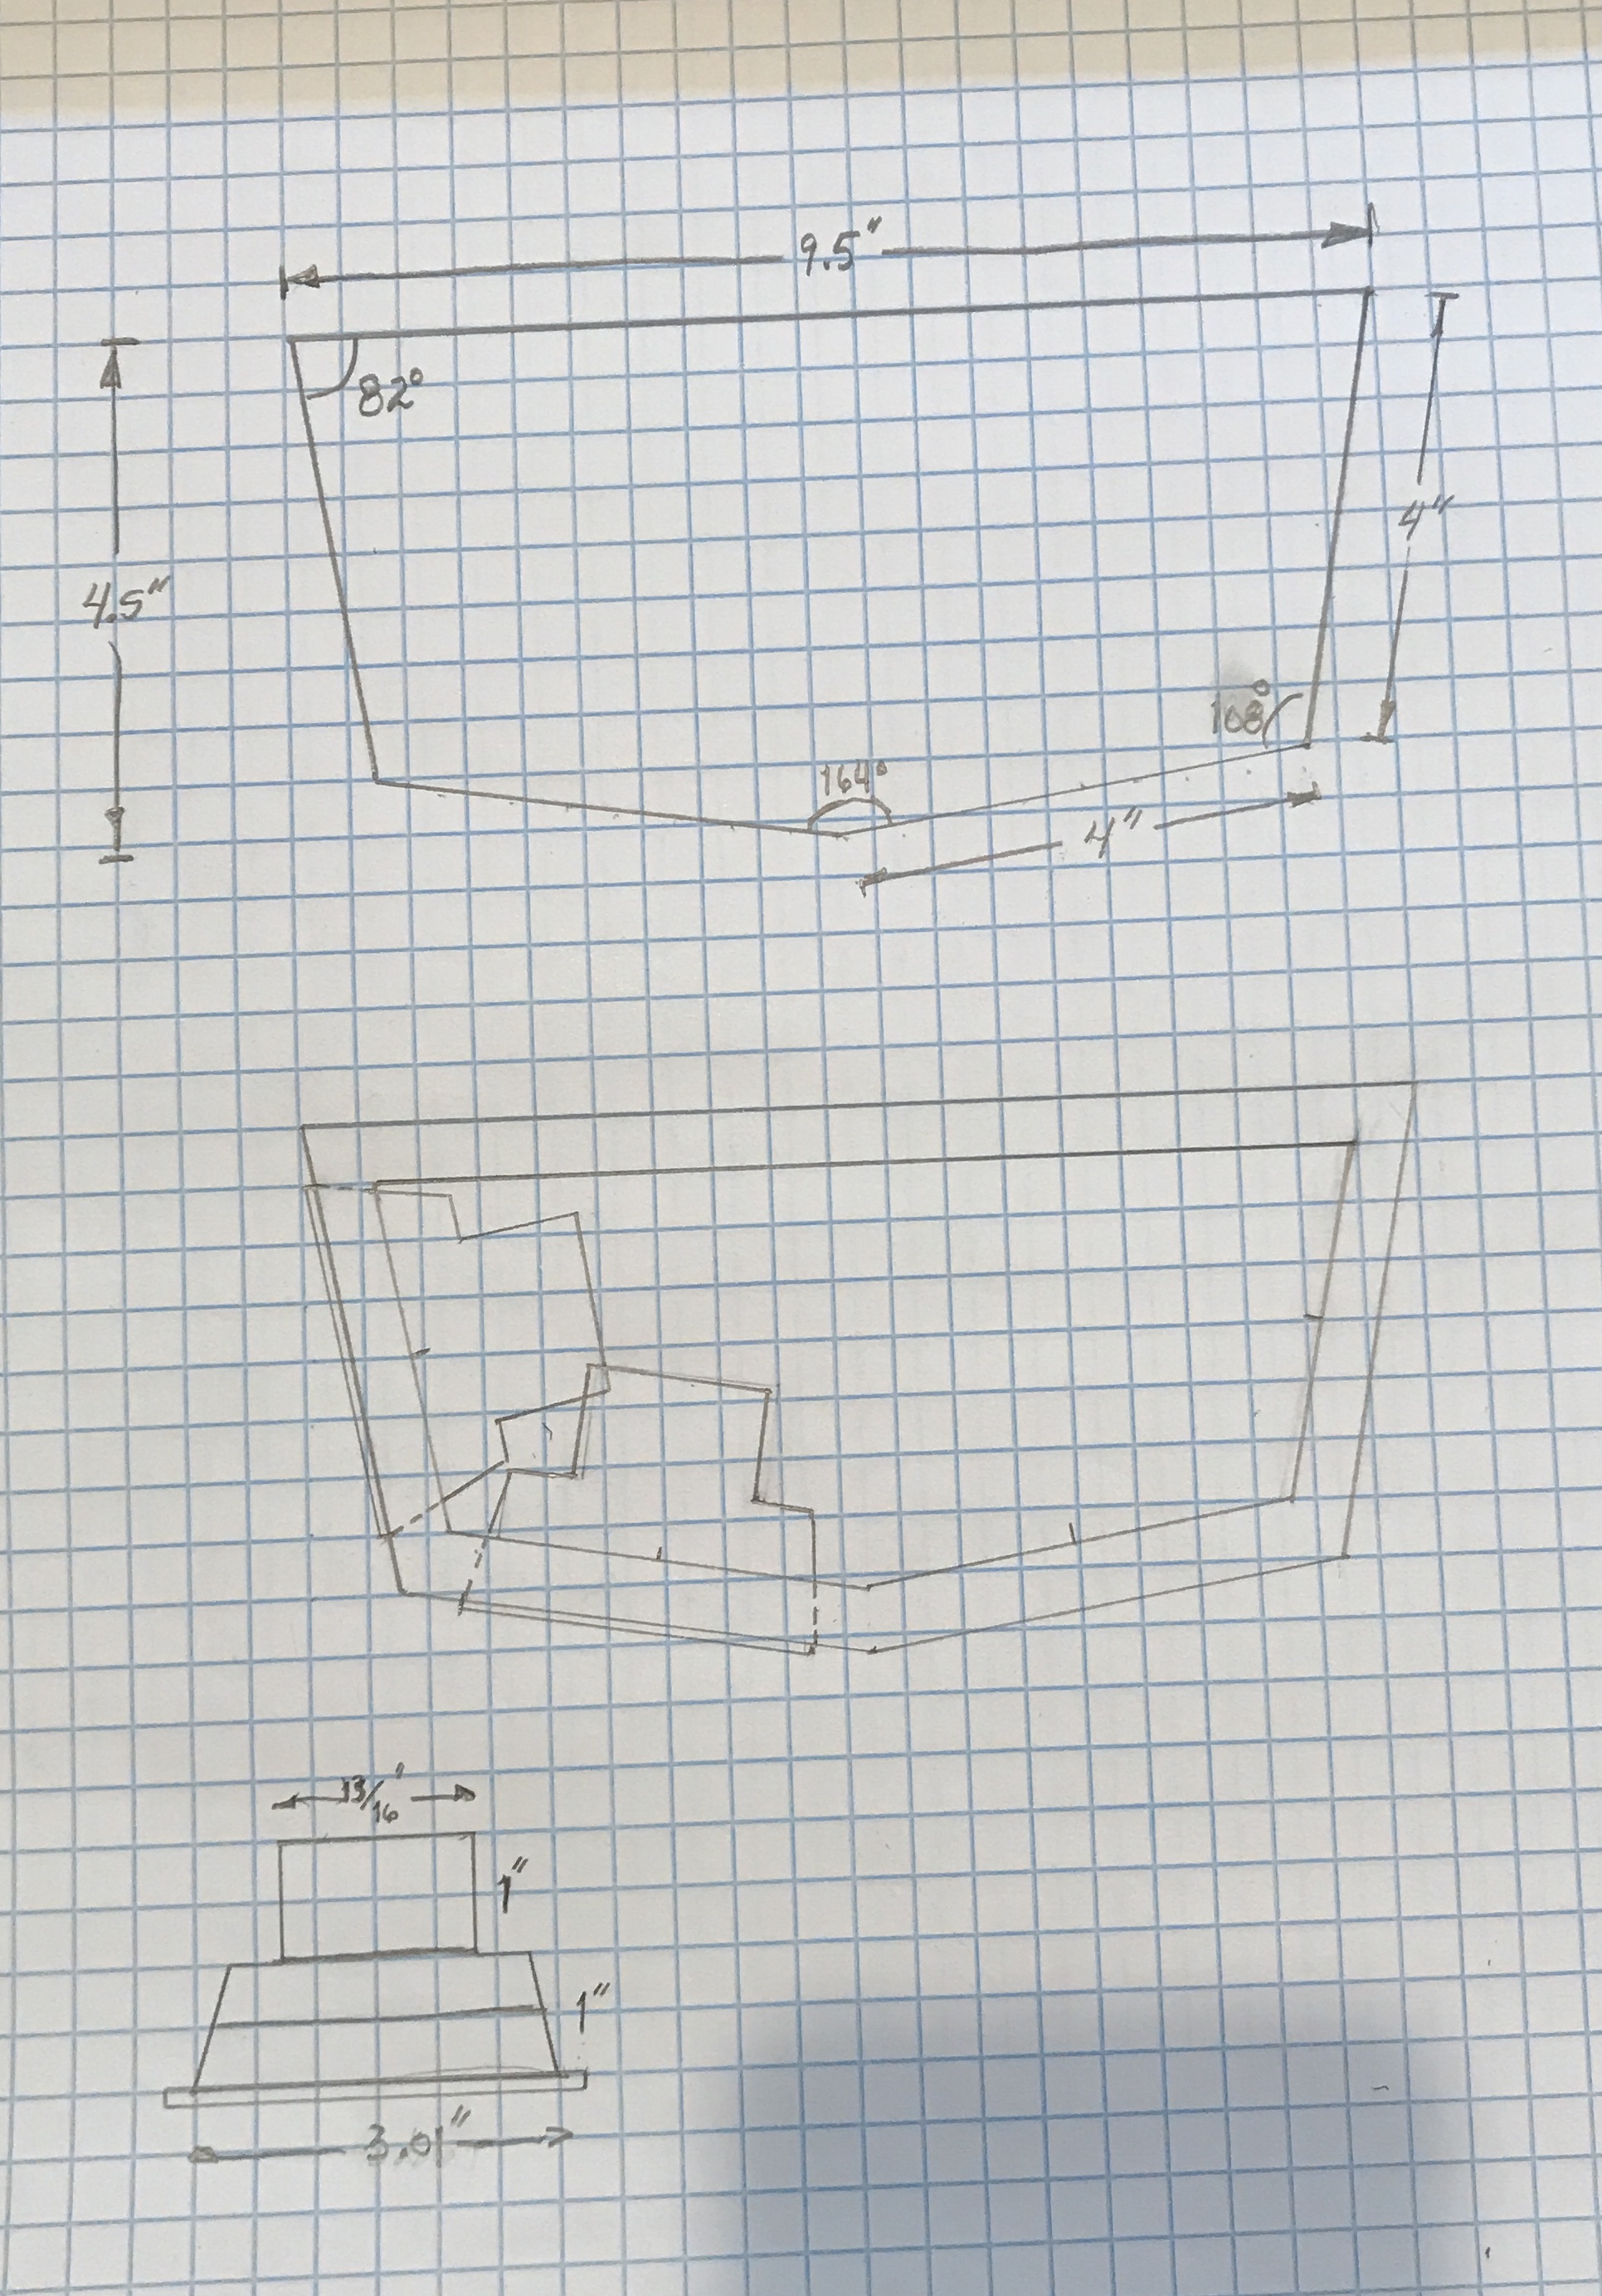 9.5"
82°
4"
4.5"
108°
164°
4"
13/16"
1"
1"
3.01"